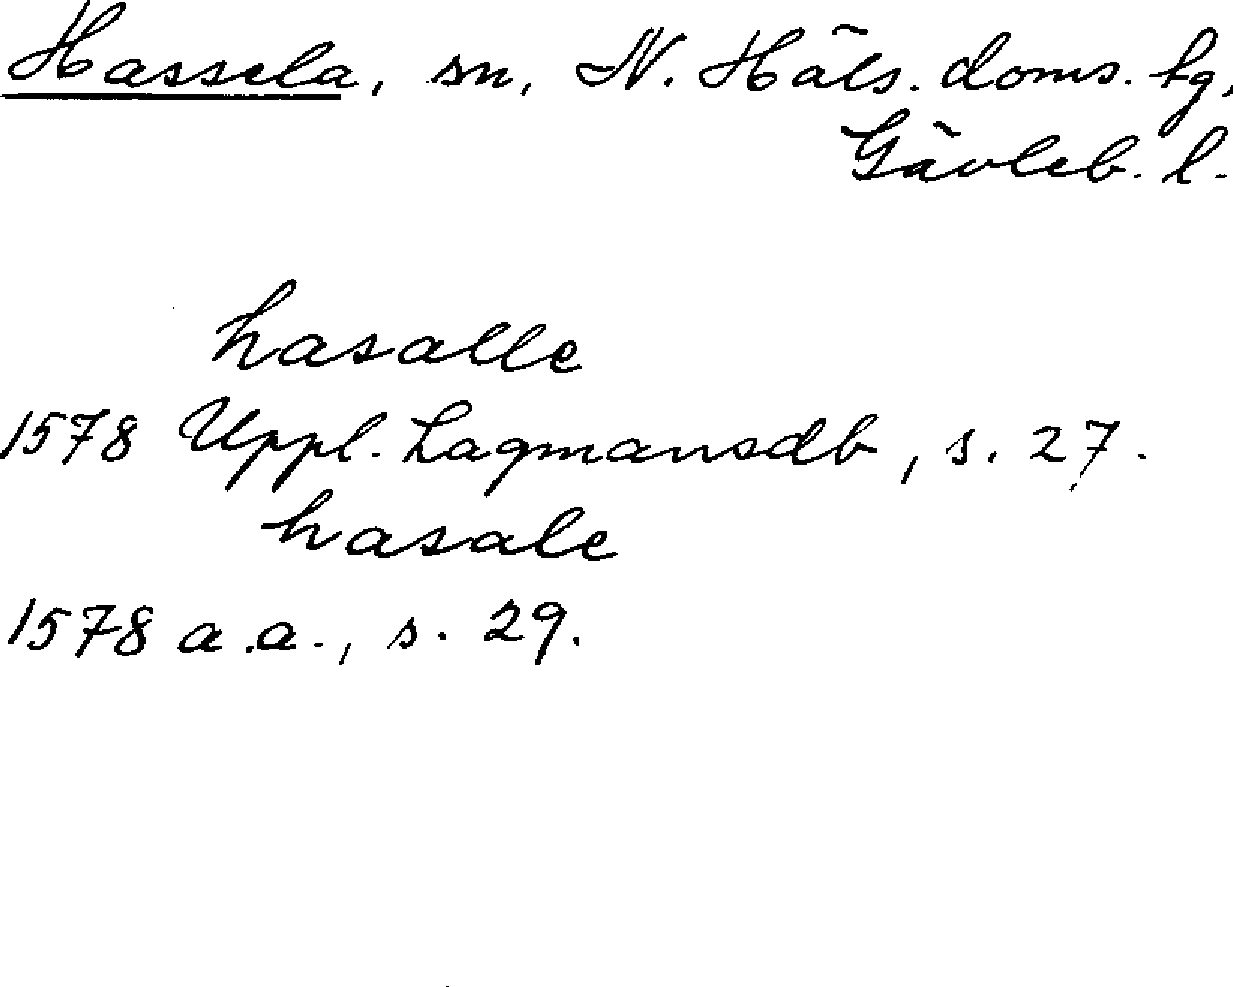 Hassela, sn, N. Häls. doms. hg,
Gävleb. l.
hasalle
1578 Uppl. Lagmansdb, s. 27.
hasale
1578 a.a., s. 29.